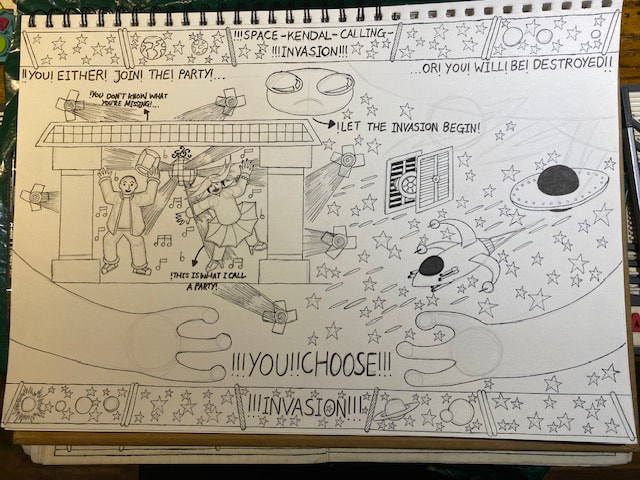 !!!SPACE-KENDAL-CALLING-
!!!INVASION!!!
!!YOU! EITHER! JOIN! THE! PARTY!...
...OR! YOU! WILL! BE! DESTROYED!!
!YOU DON'T KNOW WHAT
YOU'RE MISSING!...
!LET THE INVASION BEGIN!
!THIS IS WHAT I CALL
A PARTY!
!!!YOU!!CHOOSE!!!
!!!INVASION!!!